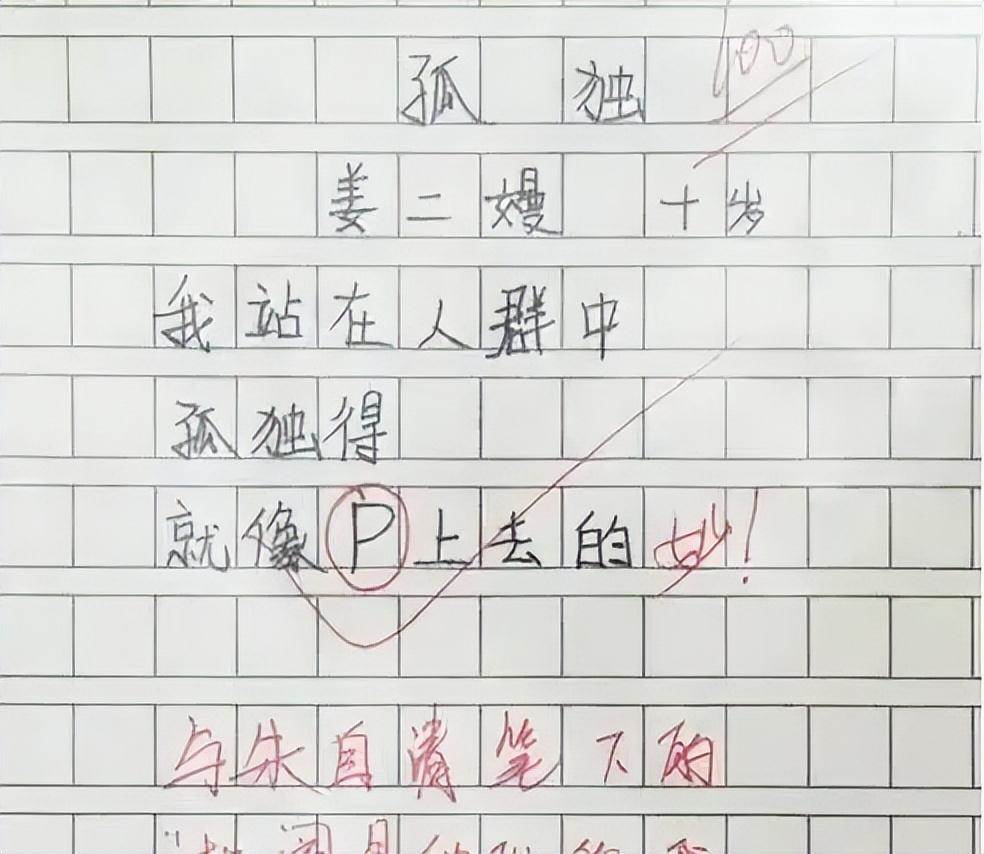 100
孤独
姜二嫚 十岁
我站在人群中
孤独得
就像P上去的 妙!
与朱自清笔下的